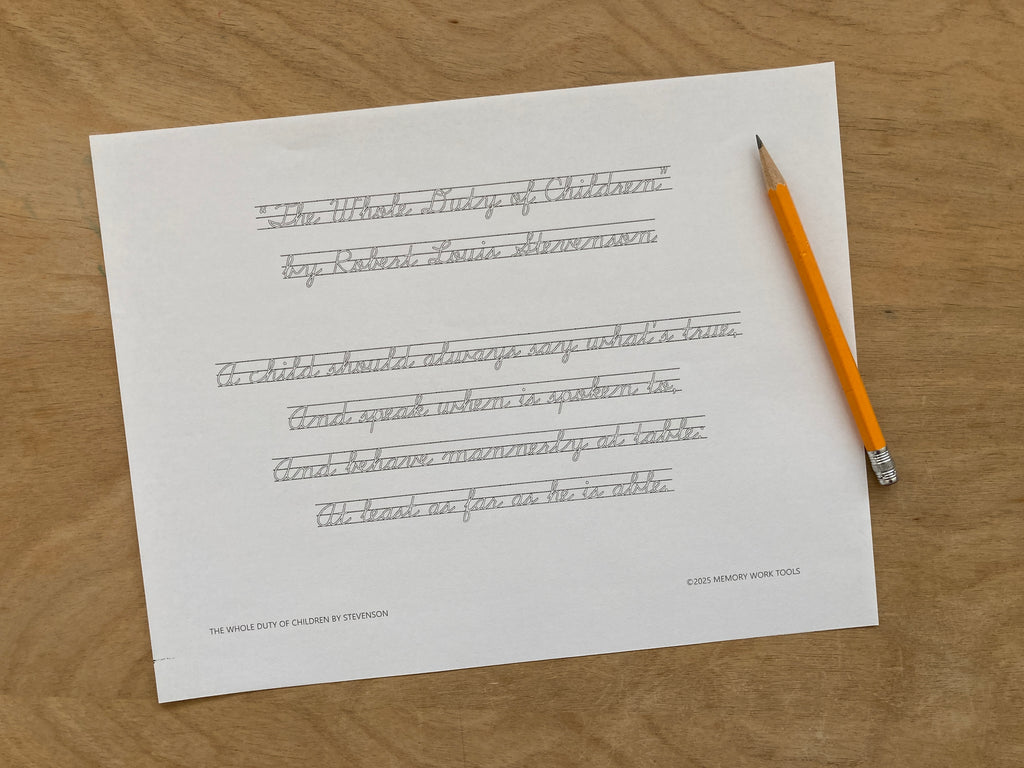 "The Whole Duty of Children"
by Robert Louis Stevenson
A child should always say what's true,
And speak when is spoken to,
And behave mannerly at table:
At least as far as he is able.
©2025 MEMORY WORK TOOLS
THE WHOLE DUTY OF CHILDREN BY STEVENSON